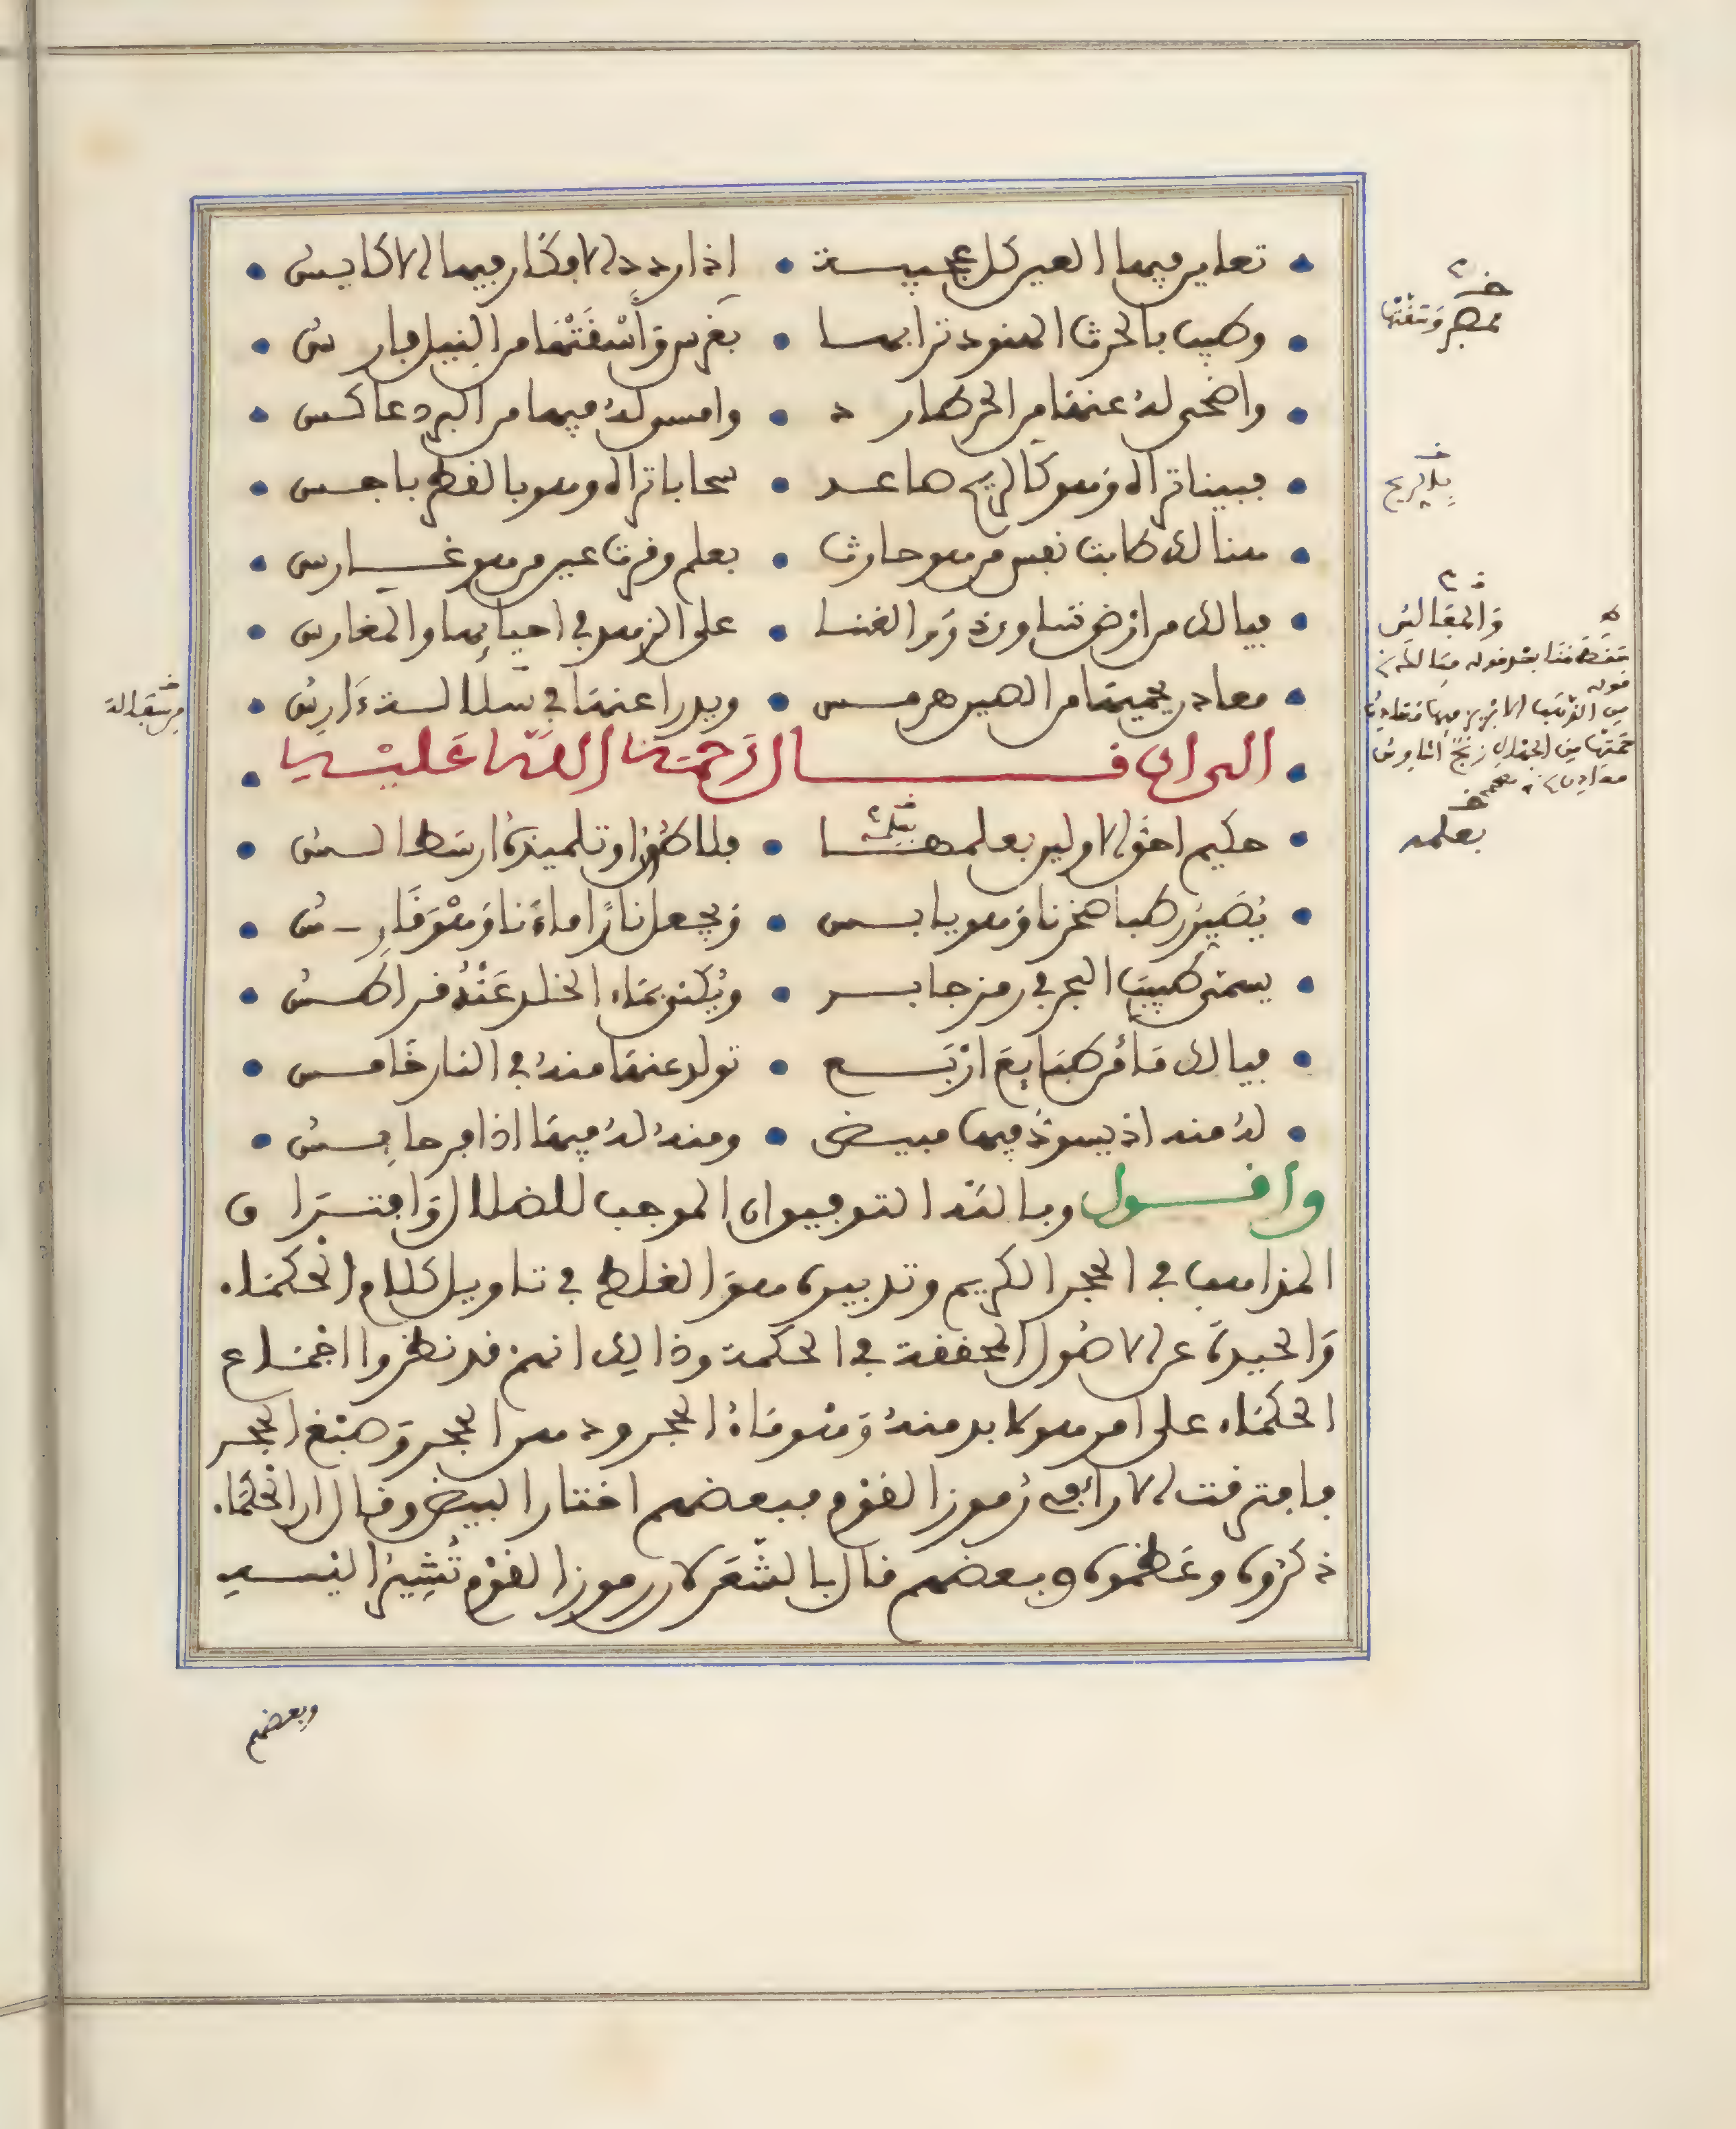 تعاين فيها العين كل عجيبة • اذا رددالافكار فيها الاكايس
وطيب بالحرث الهنود ترابها • بغرس وأسقتها من النيل فارس
واضحى له عنها من الحر طارد • وامسى له فيها من البرد عاكس
فبينا تراه وهو كالريح صاعد • سحابا تراه وهو بالقطر باجس
هنالك طابت نفس من هو حارث • بعلم وقرت عين من هو غارس
فيا لك من ارض شاوىذ زم الغنا • على الزهد في احيائها والمغارس
معادن يحميها من الصين هرمس • ويدرا عنها في سلالسة دارس
الى ان قال رحمة الله عليه
حكيم احق الاولين بعلمها • فلاطون او تلميذه ارسطالس
يصير رطبا صخرنا وهو يابس • ويجعل نارا ماءنا وهو قارس
يسمى طبيب البحر في رمز جابر • ويكنى بماء الخلد عند قراطس
فيا لك ماء من طبايع اربع • تولد عنها منه في النار خامس
له منه اذ يسود فيها مبيض • ومنه له فيها اذا فر حابس
واقول وبالله التوفيق ان الموجب للضلال وافتراق
المذاهب في الحجر الكريم وتدبيره هو الغلط في تاويل كلام الحكماء
والحيدة عن الاصول المحققة في الحكمة وذالك انهم قد نظروا اجماع
الحكماء على امر هو لا بد منه وهو ماء الحجر ودهن الحجر وصبغ الحجر
فافترقت الاراء في رموز القوم فبعضهم اختار البيض وقال ان الحكماء
ذكروه وعظموه وبعضهم قال بالشعر لان رموز القوم تشير اليه
وبعضهم
بالريح
بعلمه